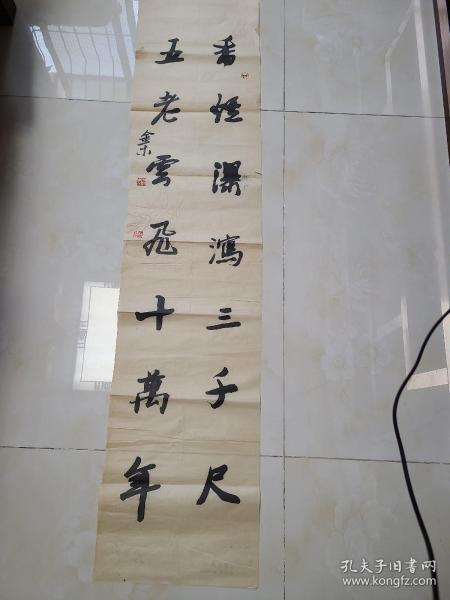 香炉瀑瀉三千尺
五老雲飛十萬年
孔夫子旧书网
www.kongfz.com